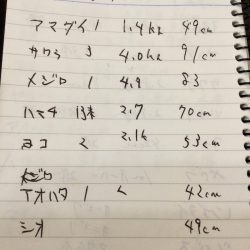 アマダイ 1 1.4kg 49cm
サワラ 3 4.0kg 91cm
メジロ 1 4.9 83
ハマチ 13本 2.7 70cm
ヨコ 2 2.1k 53cm
アオハタ 1 42cm
シオ 49cm